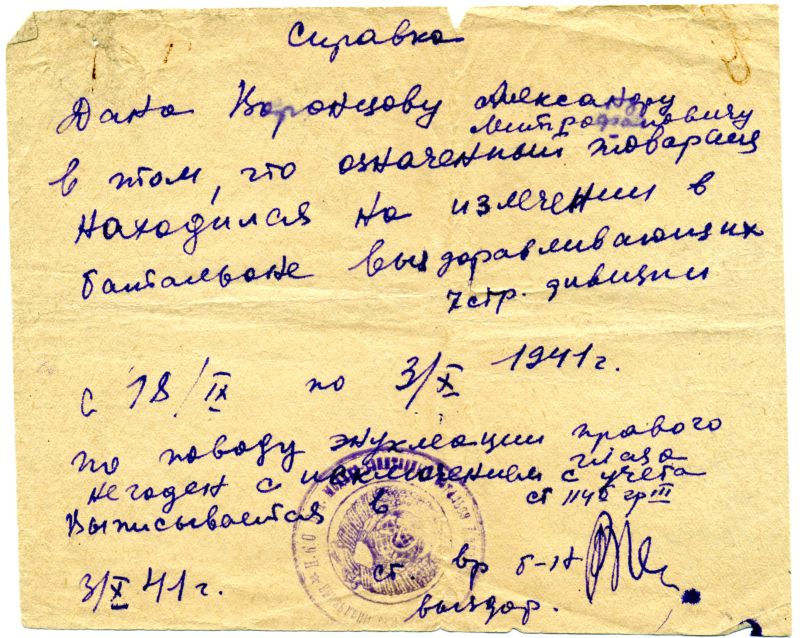 Справка
Дана Воронцову Александру
Митрофановичу
в том, что означенный товарищ
находился на излечении в
батальоне выздоравливающих
7 стр. дивизии
с 18/IX по 3/X 1941 г.
по поводу энуклеации правого
глаза
негоден с исключением с учета
ст 114б гр III
Выписывается в
3/X 41 г. ст. вр б-на
выздор.